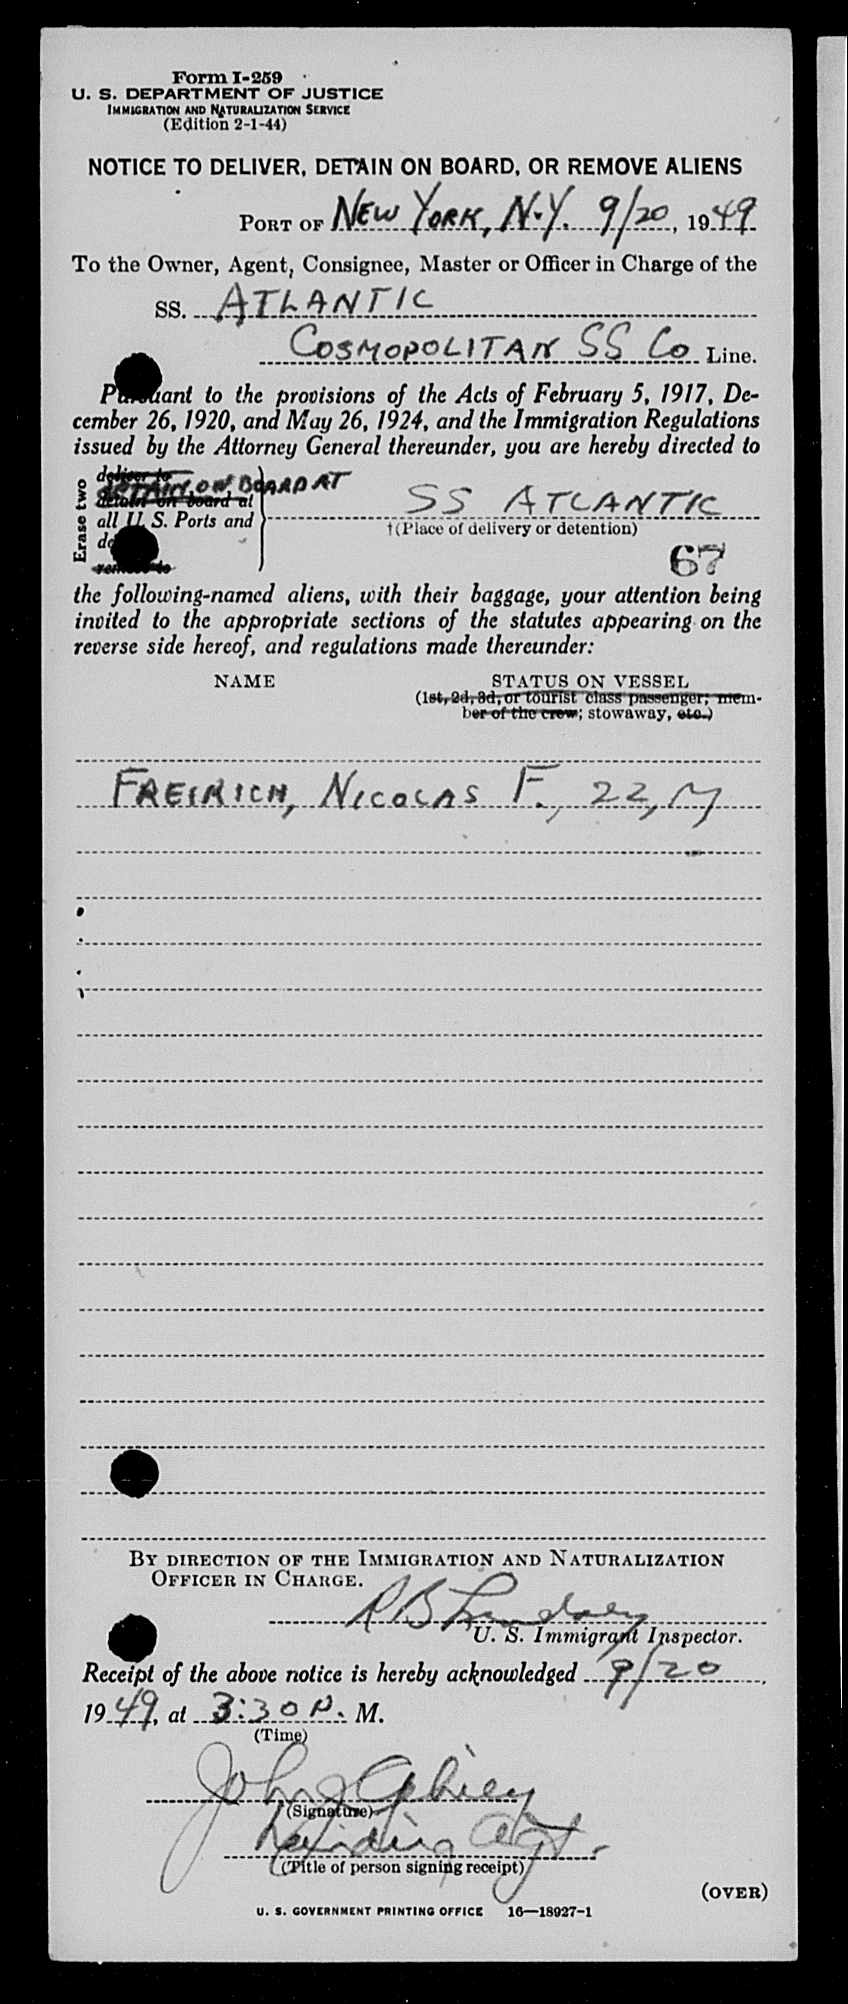 Form I-259
U. S. DEPARTMENT OF JUSTICE
IMMIGRATION AND NATURALIZATION SERVICE
(Edition 2-1-44)
NOTICE TO DELIVER, DETAIN ON BOARD, OR REMOVE ALIENS
PORT OF NEW YORK, N.Y. 9/20, 1949
To the Owner, Agent, Consignee, Master or Officer in Charge of the
SS. ATLANTIC
COSMOPOLITAN SS Co Line.
Pursuant to the provisions of the Acts of February 5, 1917, De-
cember 26, 1920, and May 26, 1924, and the Immigration Regulations
issued by the Attorney General thereunder, you are hereby directed to
Erase two
deliver to
DETAIN ON BOARD AT
detain on board at
all U. S. Ports and
SS ATLANTIC
†(Place of delivery or detention)
remove to
67
the following-named aliens, with their baggage, your attention being
invited to the appropriate sections of the statutes appearing on the
reverse side hereof, and regulations made thereunder:
NAME STATUS ON VESSEL
(1st, 2d, 3d, or tourist class passenger; mem-
ber of the crew; stowaway, etc.)
FREIRICH, NICOLAS F., 22, M
BY DIRECTION OF THE IMMIGRATION AND NATURALIZATION
OFFICER IN CHARGE.
R B Lindsley
U. S. Immigrant Inspector.
Receipt of the above notice is hereby acknowledged 9/20,
1949, at 3:30 P. M.
(Time)
John J
(Signature)
Landing Agt.
(Title of person signing receipt)
(OVER)
U. S. GOVERNMENT PRINTING OFFICE 16—18927-1